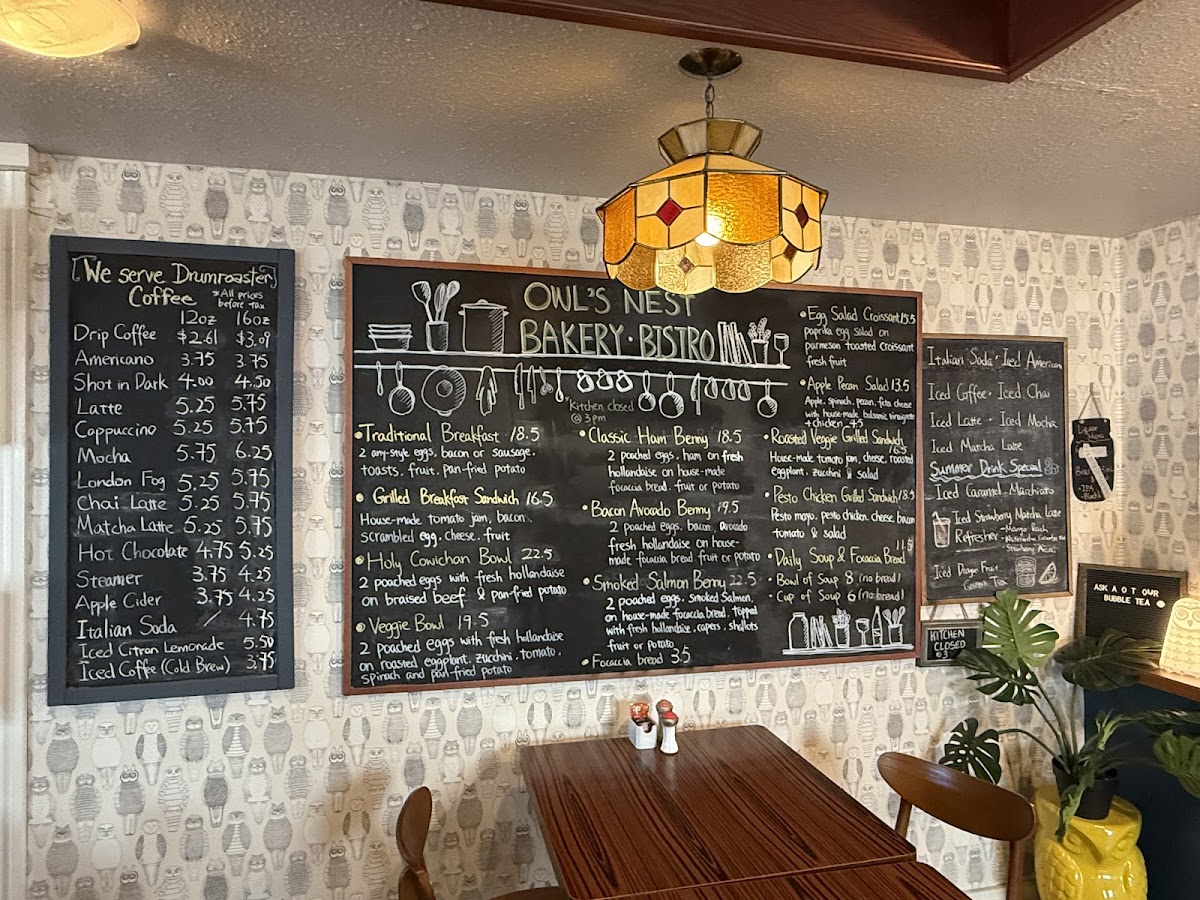 We serve Drumroaster
Coffee *All prices
before tax
12oz 16oz
Drip Coffee $2.61 $3.09
Americano 3.75 3.75
Shot in Dark 4.00 4.50
Latte 5.25 5.75
Cappuccino 5.25 5.75
Mocha 5.75 6.25
London Fog 5.25 5.75
Chai Latte 5.25 5.75
Matcha Latte 5.25 5.75
Hot Chocolate 4.75 5.25
Steamer 3.75 4.25
Apple Cider 3.75 4.25
Italian Soda / 4.75
Iced Citron Lemonade 5.50
Iced Coffee (Cold Brew) 3.75
OWL'S NEST
BAKERY · BISTRO
*Kitchen closed
@ 3pm
• Traditional Breakfast 18.5
2 any-style eggs, bacon or sausage,
toasts, fruit, pan-fried potato
• Grilled Breakfast Sandwich 16.5
House-made tomato jam, bacon,
scrambled egg, cheese, fruit
• Holy Cowichan Bowl 22.5
2 poached eggs with fresh hollandaise
on braised beef & pan-fried potato
• Veggie Bowl 19.5
2 poached eggs with fresh hollandaise
on roasted eggplant, zucchini, tomato,
spinach and pan-fried potato
• Classic Ham Benny 18.5
2 poached eggs, ham on fresh
hollandaise on house-made
focaccia bread, fruit or potato
• Bacon Avocado Benny 19.5
2 poached eggs, bacon, avocado
fresh hollandaise on house-
made focaccia bread, fruit or potato
• Smoked Salmon Benny 22.5
2 poached eggs, smoked Salmon,
on house-made focaccia bread, topped
with fresh hollandaise, capers, shallots
fruit or potato
• Focaccia bread 3.5
• Egg Salad Croissant 15.5
paprika egg salad on
parmesan toasted croissant
fresh fruit
• Apple Pecan Salad 13.5
Apple, spinach, pecan, feta cheese
with house-made balsamic vinaigrette
+ chicken 4.5
• Roasted Veggie Grilled Sandwich
16.5
House-made tomato jam, cheese, roasted
eggplant, zucchini & salad
• Pesto Chicken Grilled Sandwich 18.5
Pesto mayo, pesto chicken, cheese, bacon
tomato & salad
11.5
• Daily Soup & Focaccia Bread
• Bowl of Soup 8 (no bread)
• Cup of Soup 6 (no bread)
Italian Soda · Iced American
Iced Coffee · Iced Chai
Iced Latte · Iced Mocha
Iced Matcha Latte
Summer Drink Special
Iced Caramel Macchiato
Iced Strawberry Matcha Latte
Refresher - Mango Peach
Strawberry Acai
Iced Dragon Fruit
Green Tea
KITCHEN
CLOSED
@ 3
ASK A O T OUR
BUBBLE TEA